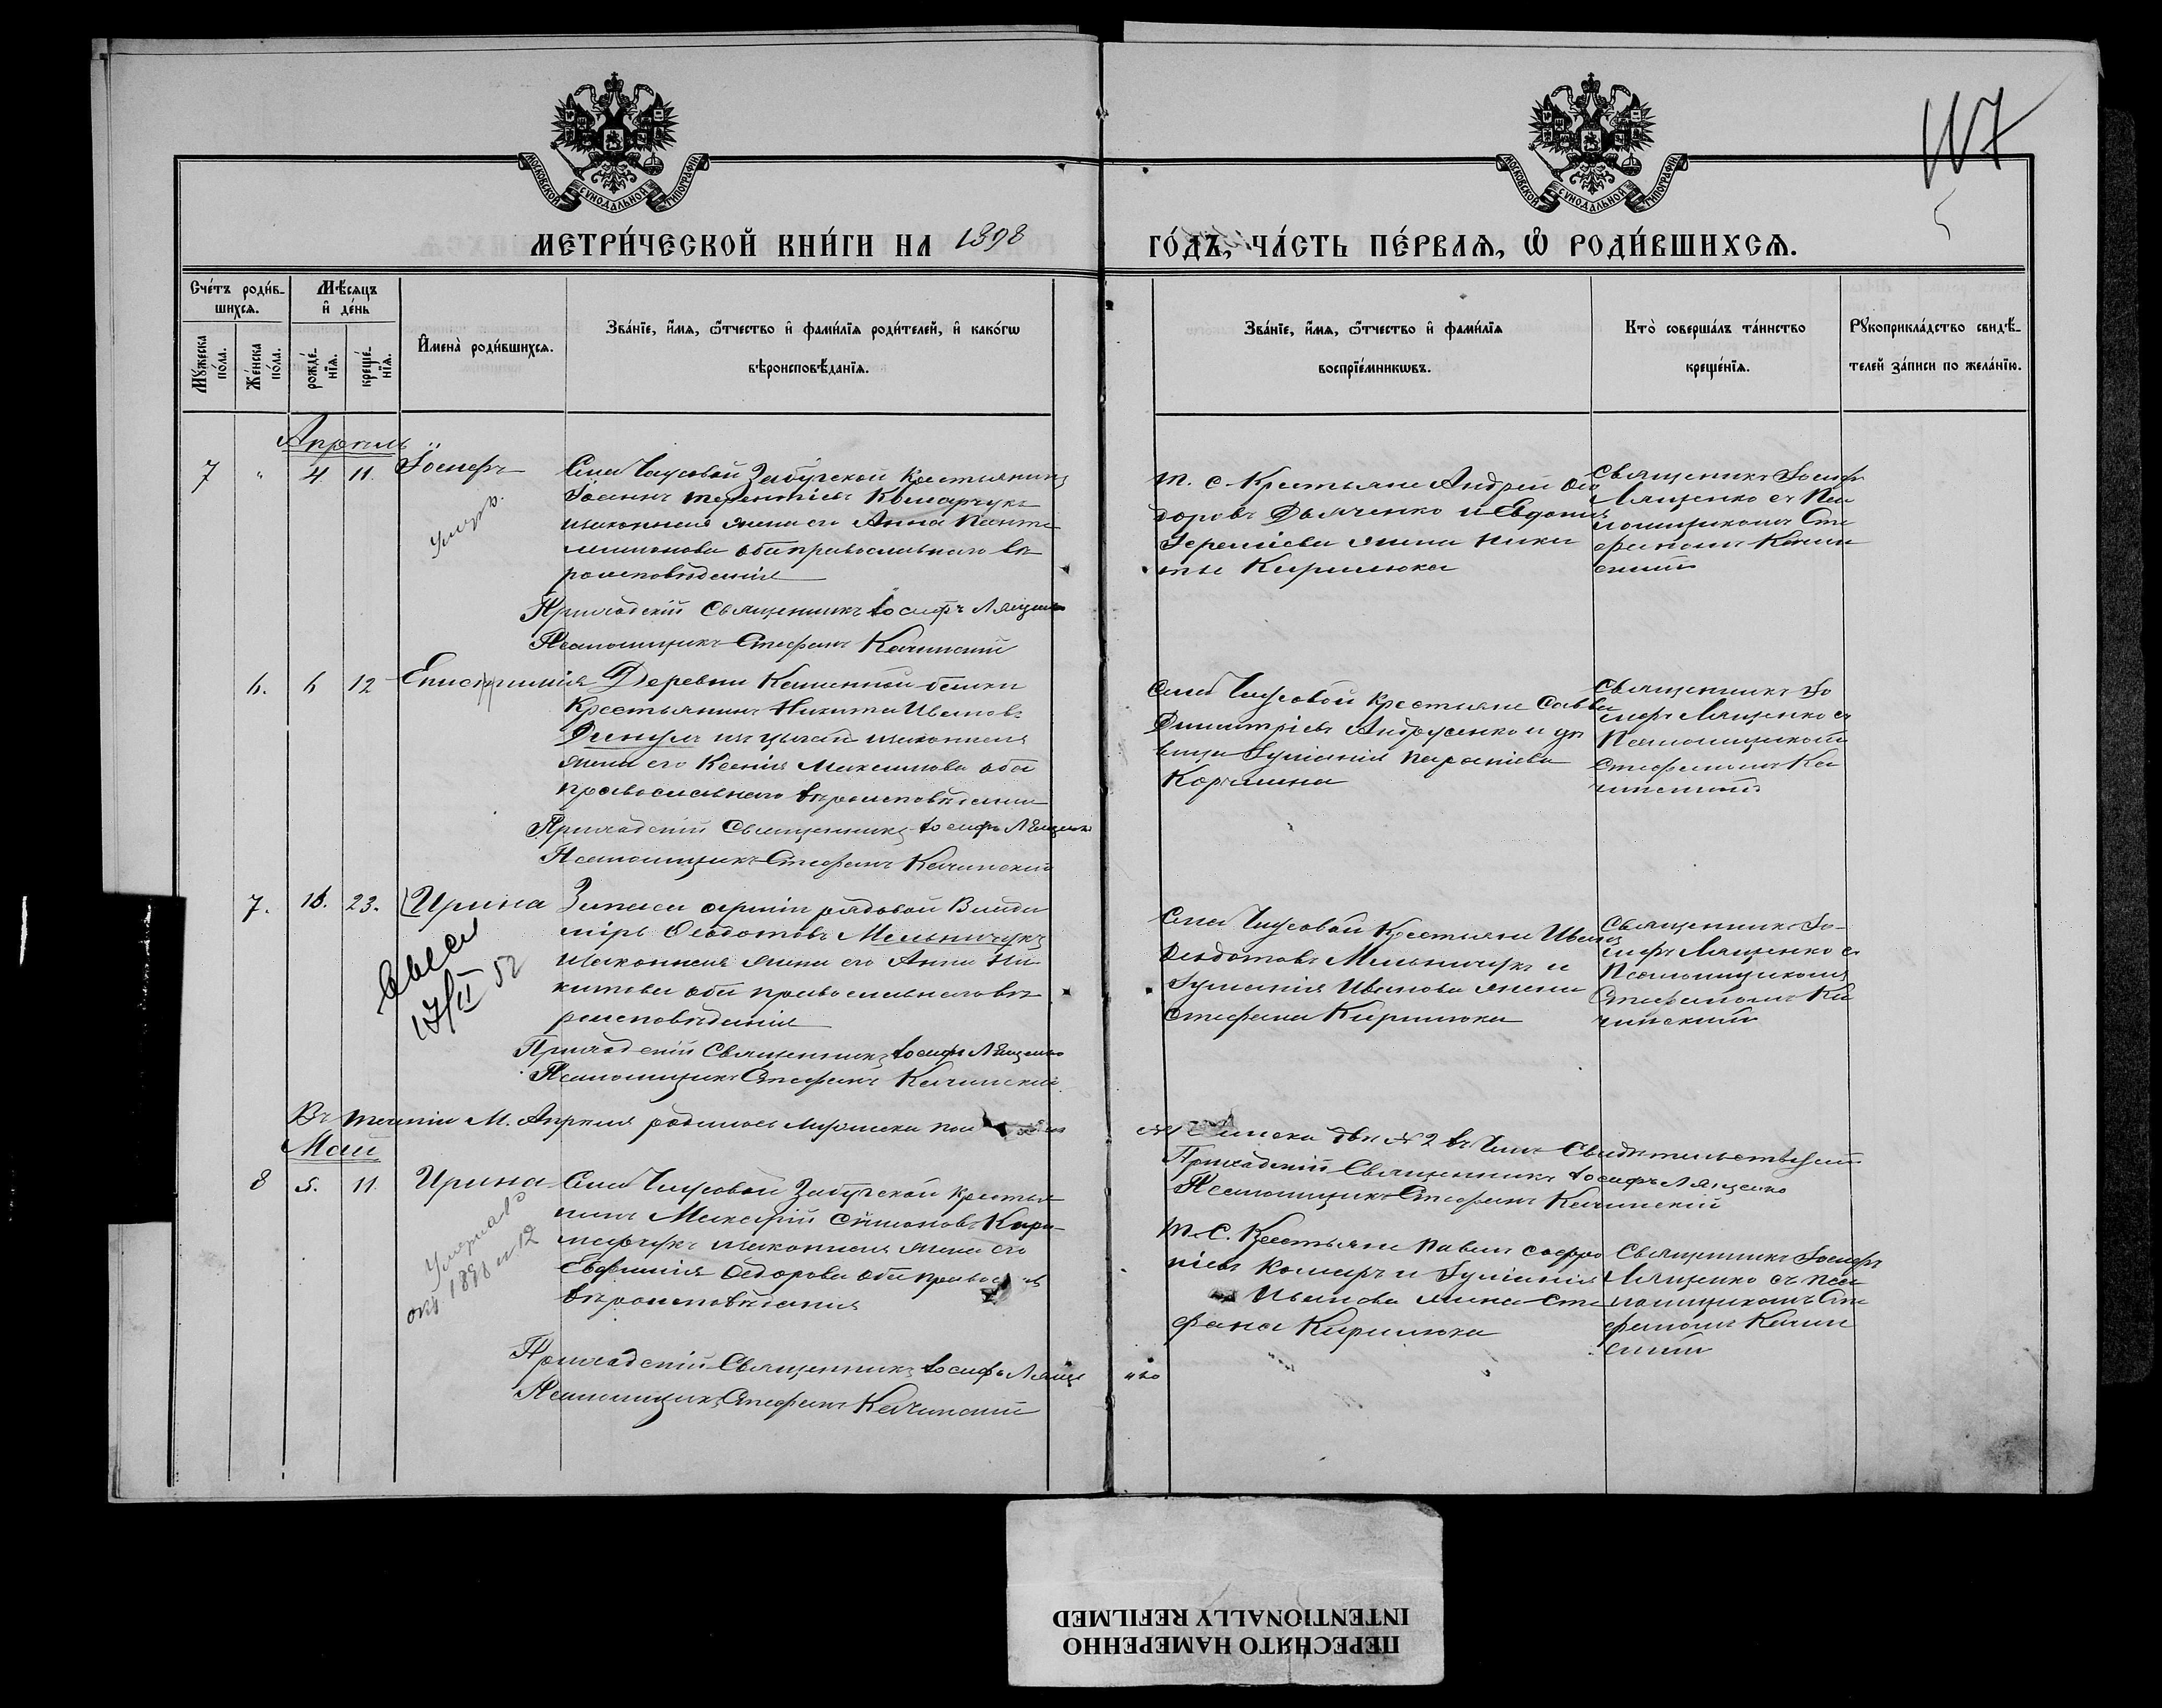 МОСКОВСКОЙ СѴНОДАЛЬНОЙ ТИПОГРАФІИ
МОСКОВСКОЙ СѴНОДАЛЬНОЙ ТИПОГРАФІИ
117
МЕТРИ́ЧЕСКОЙ КНИ́ГИ НА 1898
ГО́ДЪ, ЧА́СТЬ ПЕ́РВАѦ, Ѽ РОДИ́ВШИХСѦ.
Сче́тъ роди́в-
шихсѧ.
Мѣ́сѧцъ
и҆ де́нь
Мꙋ́жеска по́ла.
Же́нска по́ла.
рожде́-нїѧ.
креще́-нїѧ.
И҆мена̀ роди́вшихсѧ.
Зва́нїе, и҆́мѧ, ѻ҆́тчество и҆ фами́лїѧ роди́телей, и҆ како́гѡ
вѣроисповѣ́данїѧ.
Зва́нїе, и҆́мѧ, ѻ҆́тчество и҆ фами́лїѧ
воспрїе́мникѡвъ.
Кто̀ соверша́лъ та́инство
креще́нїѧ.
Рꙋкоприкла́дство свидѣ́-
телей за́писи по жела́нїю.
Апрѣль
7 " 4. 11. Іосифъ
Умеръ.
Села Чаусовой Забугской Крестьянинъ
Іоаннъ Терентіевъ Комарчукъ
и законная жена его Анна Панте
лимонова оба православнаго вѣ
роисповѣданія
Приходскій Священникъ Іосифъ Лященко
Псаломщикъ Стефанъ Качинскій
т. с. Крестьяне Андрей Ѳео
доровъ Дьяченко и Евдокия
Іереміева жена Ники
ты Кирилюка
Священникъ Іосифъ
Лященко съ Пса
ломщикомъ Сте
фаномъ Качин
скимъ
6. 6 12
Деревни Каменной балки
Крестьянинъ Никита Ивановъ
и законная
жена его Ксенія Максимова оба
православнаго вѣроисповѣданія
Приходскій Священникъ Іосифъ Лященко
Псаломщикъ Стефанъ Качинскій
Села Чаусовой Крестьяне Савва
Димитріевъ Андрусенко и дѣ
вица Іуліанія
Священникъ Іо
сифъ Лященко съ
Псаломщикомъ
Стефаномъ Ка
чинскимъ
7. 16. 23. Ирина
17/II 52
Запаса арміи рядовой Влади
міръ Ѳеодотовъ Мельничукъ
и законная жена его Анна Ни
китова оба православнаго вѣ
роисповѣданія
Приходскій Священникъ Іосифъ Лященко
Псаломщикъ Стефанъ Качинскій
Села Чаусовой Крестьяне Иванъ
Ѳеодотовъ Мельничукъ и
Іуліанія Иванова жена
Стефана Кирилюка
Священникъ Іо-
сифъ Лященко съ
Псаломщикомъ
Стефаномъ Ка
чинскимъ
Въ теченіи М. Апрѣля родилось мужеска пола
№ 1 Женска два № 2 въ чемъ Свидѣтельствуемъ
Приходскій Священникъ Іосифъ Лященко
Псаломщикъ Стефанъ Качинскій
Май
8 5. 11. Ирина
Умерла
окт 1898 № 12
Села Чаусовой Забугской Крестья
нинъ Макарій Симоновъ
и законная жена его
Евфимія Ѳедорова оба православ
вѣроисповѣданія
Приходскій Священникъ Іосифъ Ляще
нко
Псаломщикъ Стефанъ Качинскій
т. с. Крестьяне Павелъ Софро
ніевъ Комаръ и Іуліанія
Иванова жена Сте
фана Кирилюка
Священникъ Іосифъ
Лященко съ Пса
ломщикомъ Сте
фаномъ Качин
скимъ
ПЕРЕСНЯТО НАМЕРЕННО
INTENTIONALLY REFILMED